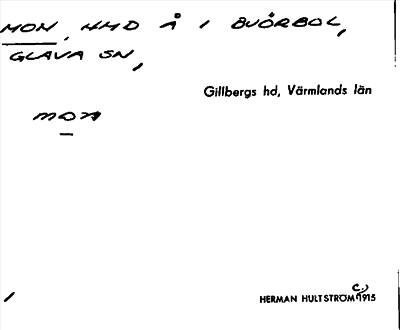 MON, HMD Å I BJÖRBOL,
GLAVA SN,
Gillbergs hd, Värmlands län
mon
HERMAN HULTSTRÖM C.) 1915